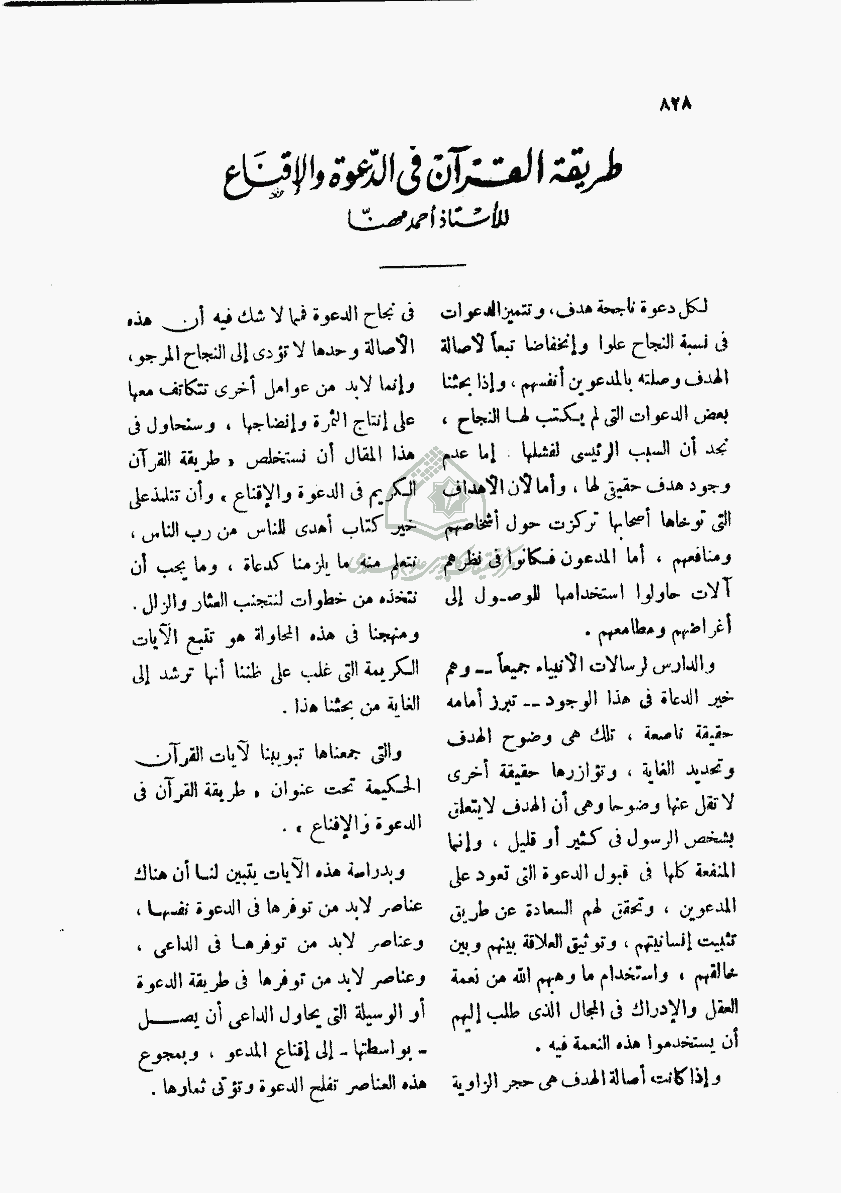 ٨٢٨
طريقة القرآن فى الدّعوة والإقناع
للأستاذ أحمد مهنّا
لكل دعوة ناجحة هدف، وتتميز الدعوات
فى نسبة النجاح علوا وإنخفاضا تبعاً لأصالة
الهدف وصلته بالمدعوين أنفسهم، وإذا بحثنا
بعض الدعوات التى لم يكتب لها النجاح،
نجد أن السبب الرئيسى لفشلها إما عدم
وجود هدف حقيقى لها، وأما لأن الأهداف
التى توخاها أصحابها تركزت حول أشخاصهم
ومنافعهم، أما المدعون فكانوا فى نظرهم
آلات حاولوا استخدامها للوصول إلى
أغراضهم ومطامعهم.
والدارس لرسالات الأنبياء جميعاً -- وهم
خير الدعاة فى هذا الوجود -- تبرز أمامه
حقيقة ناصعة، تلك هى وضوح الهدف
وتحديد الغاية، وتؤازرها حقيقة أخرى
لا تقل عنها وضوحا وهى أن الهدف لا يتعلق
بشخص الرسول فى كثير أو قليل، وإنما
المنفعة كلها فى قبول الدعوة التى تعود على
المدعوين، وتحقق لهم السعادة عن طريق
تثبيت إنسانيتهم، وتوثيق العلاقة بينهم وبين
خالقهم، واستخدام ما وهبهم الله من نعمة
العقل والإدراك فى المجال الذى طلب إليهم
أن يستخدموا هذه النعمة فيه.
وإذا كانت أصالة الهدف هى حجر الزاوية
فى نجاح الدعوة فما لا شك فيه أن هذه
الأصالة وحدها لا تؤدى إلى النجاح المرجو،
وإنما لابد من عوامل أخرى تتكاتف معها
على إنتاج الثمرة وإنضاجها، وسنحاول فى
هذا المقال أن نستخلص «طريقة القرآن
الكريم فى الدعوة والإقناع» وأن نتتلمذ على
خير كتاب أهدى للناس من رب الناس،
نتعلم منه ما يلزمنا كدعاة، وما يجب أن
نتخذه من خطوات لنتجنب العثار والزلل.
ومنهجنا فى هذه المحاولة هو تتبع الآيات
الكريمة التى غلب على ظننا أنها ترشد إلى
الغاية من بحثنا هذا.
والتى جمعناها تبويبنا لآيات القرآن
الحكيمة تحت عنوان «طريقة القرآن فى
الدعوة والإقناع».
وبدراسة هذه الآيات يتبين لنا أن هناك
عناصر لابد من توفرها فى الدعوة نفسها،
وعناصر لابد من توفرها فى الداعى،
وعناصر لابد من توفرها فى طريقة الدعوة
أو الوسيلة التى يحاول الداعى أن يصل
- بواسطتها - إلى إقناع المدعو، وبمجموع
هذه العناصر تفلح الدعوة وتؤتى ثمارها.